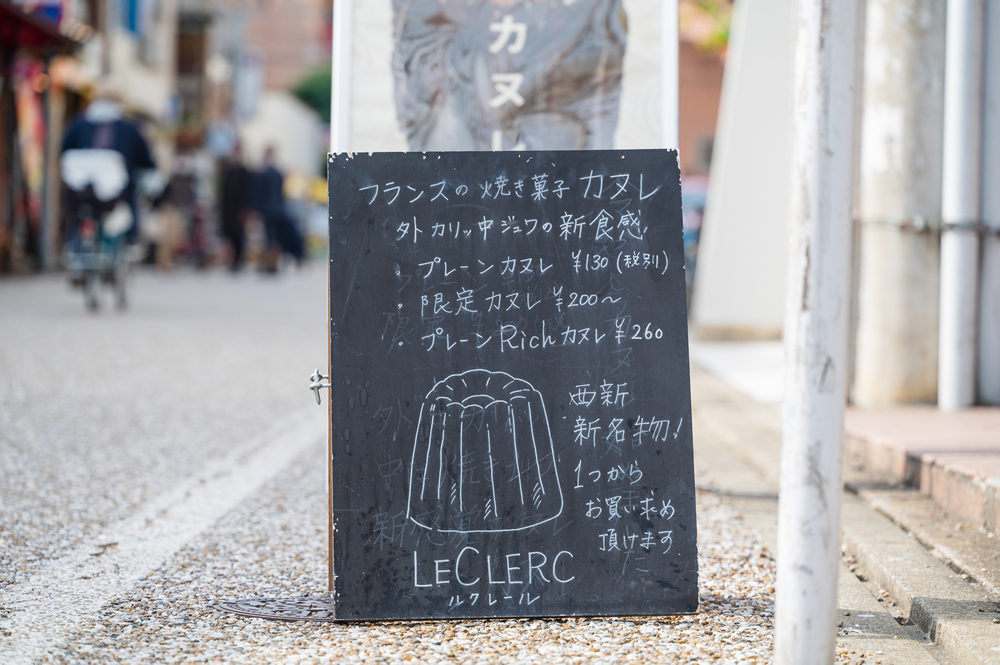 カヌ
フランスの 焼き菓子 カヌレ
外カリッ中ジュワの新食感!
・プレーンカヌレ ¥130 (税別)
・限定カヌレ ¥200〜
・プレーンRichカヌレ ¥260
西新
新名物!
1つから
お買い求め
頂けます
LECLERC
ルクレール